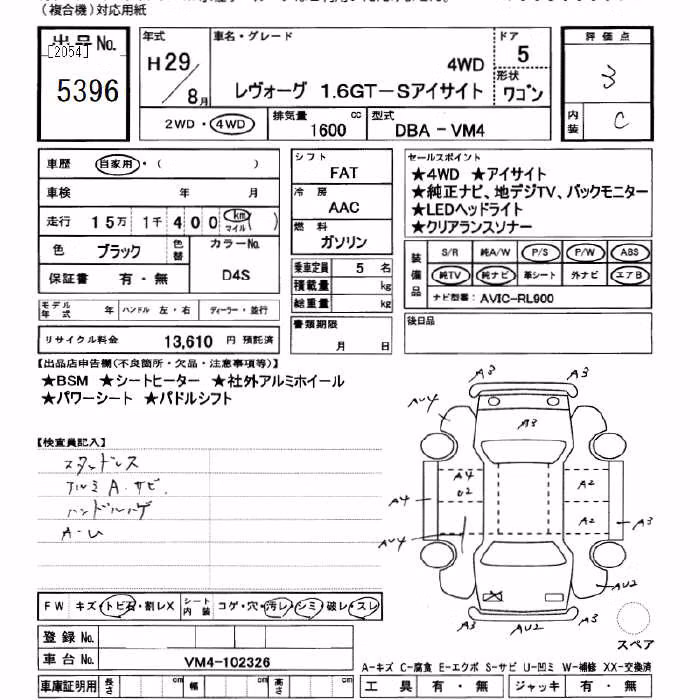 (複合機)対応用紙
出品No.
[2054]
5396
年式
H29/8月
車名・グレード
4WD
レヴォーグ 1.6GT-Sアイサイト
ドア
5
形状
ワゴン
評価点
3
内装
C
2WD・4WD
排気量
1600 cc
型式
DBA-VM4
車歴 自家用・( )
車検 年 月
走行 15万 1千 400 km マイル ( )
色 ブラック 色替
カラーNo.
D4S
保証書 有・無
シフト
FAT
冷房
AAC
燃料
ガソリン
乗車定員 5 名
積載量 kg
総重量 kg
セールスポイント
★4WD ★アイサイト
★純正ナビ、地デジTV、バックモニター
★LEDヘッドライト
★クリアランスソナー
装備品
S/R 純A/W P/S P/W ABS
純TV 純ナビ 革シート 外ナビ エアB
ナビ型番: AVIC-RL900
モデル年式 年 ハンドル 左・右 ディーラー・並行
リサイクル料金 13,610 円 預託済
書類期限
月 日
後日品
【出品店申告欄(不良箇所・欠品・注意事項等)】
★BSM ★シートヒーター ★社外アルミホイール
★パワーシート ★パドルシフト
【検査員記入】
スタッドレス
アルミ A.サビ.
ハンドルハゲ
A-U
A3 A3
AU4
A3
A4 A4 U2 A2
A2 A3
AU4
AU2
A3 AU2 A3
スペア
FW キズ・トビ石・割レX
シート内装 コゲ・穴・汚レ・シミ・破レ・スレ
登録No.
車台No. VM4-102326
車庫証明用 長さ cm 幅 cm 高さ cm
A-キズ C-腐食 E-エクボ S-サビ U-凹ミ W-補修 XX-交換済
工具 有・無 ジャッキ 有・無